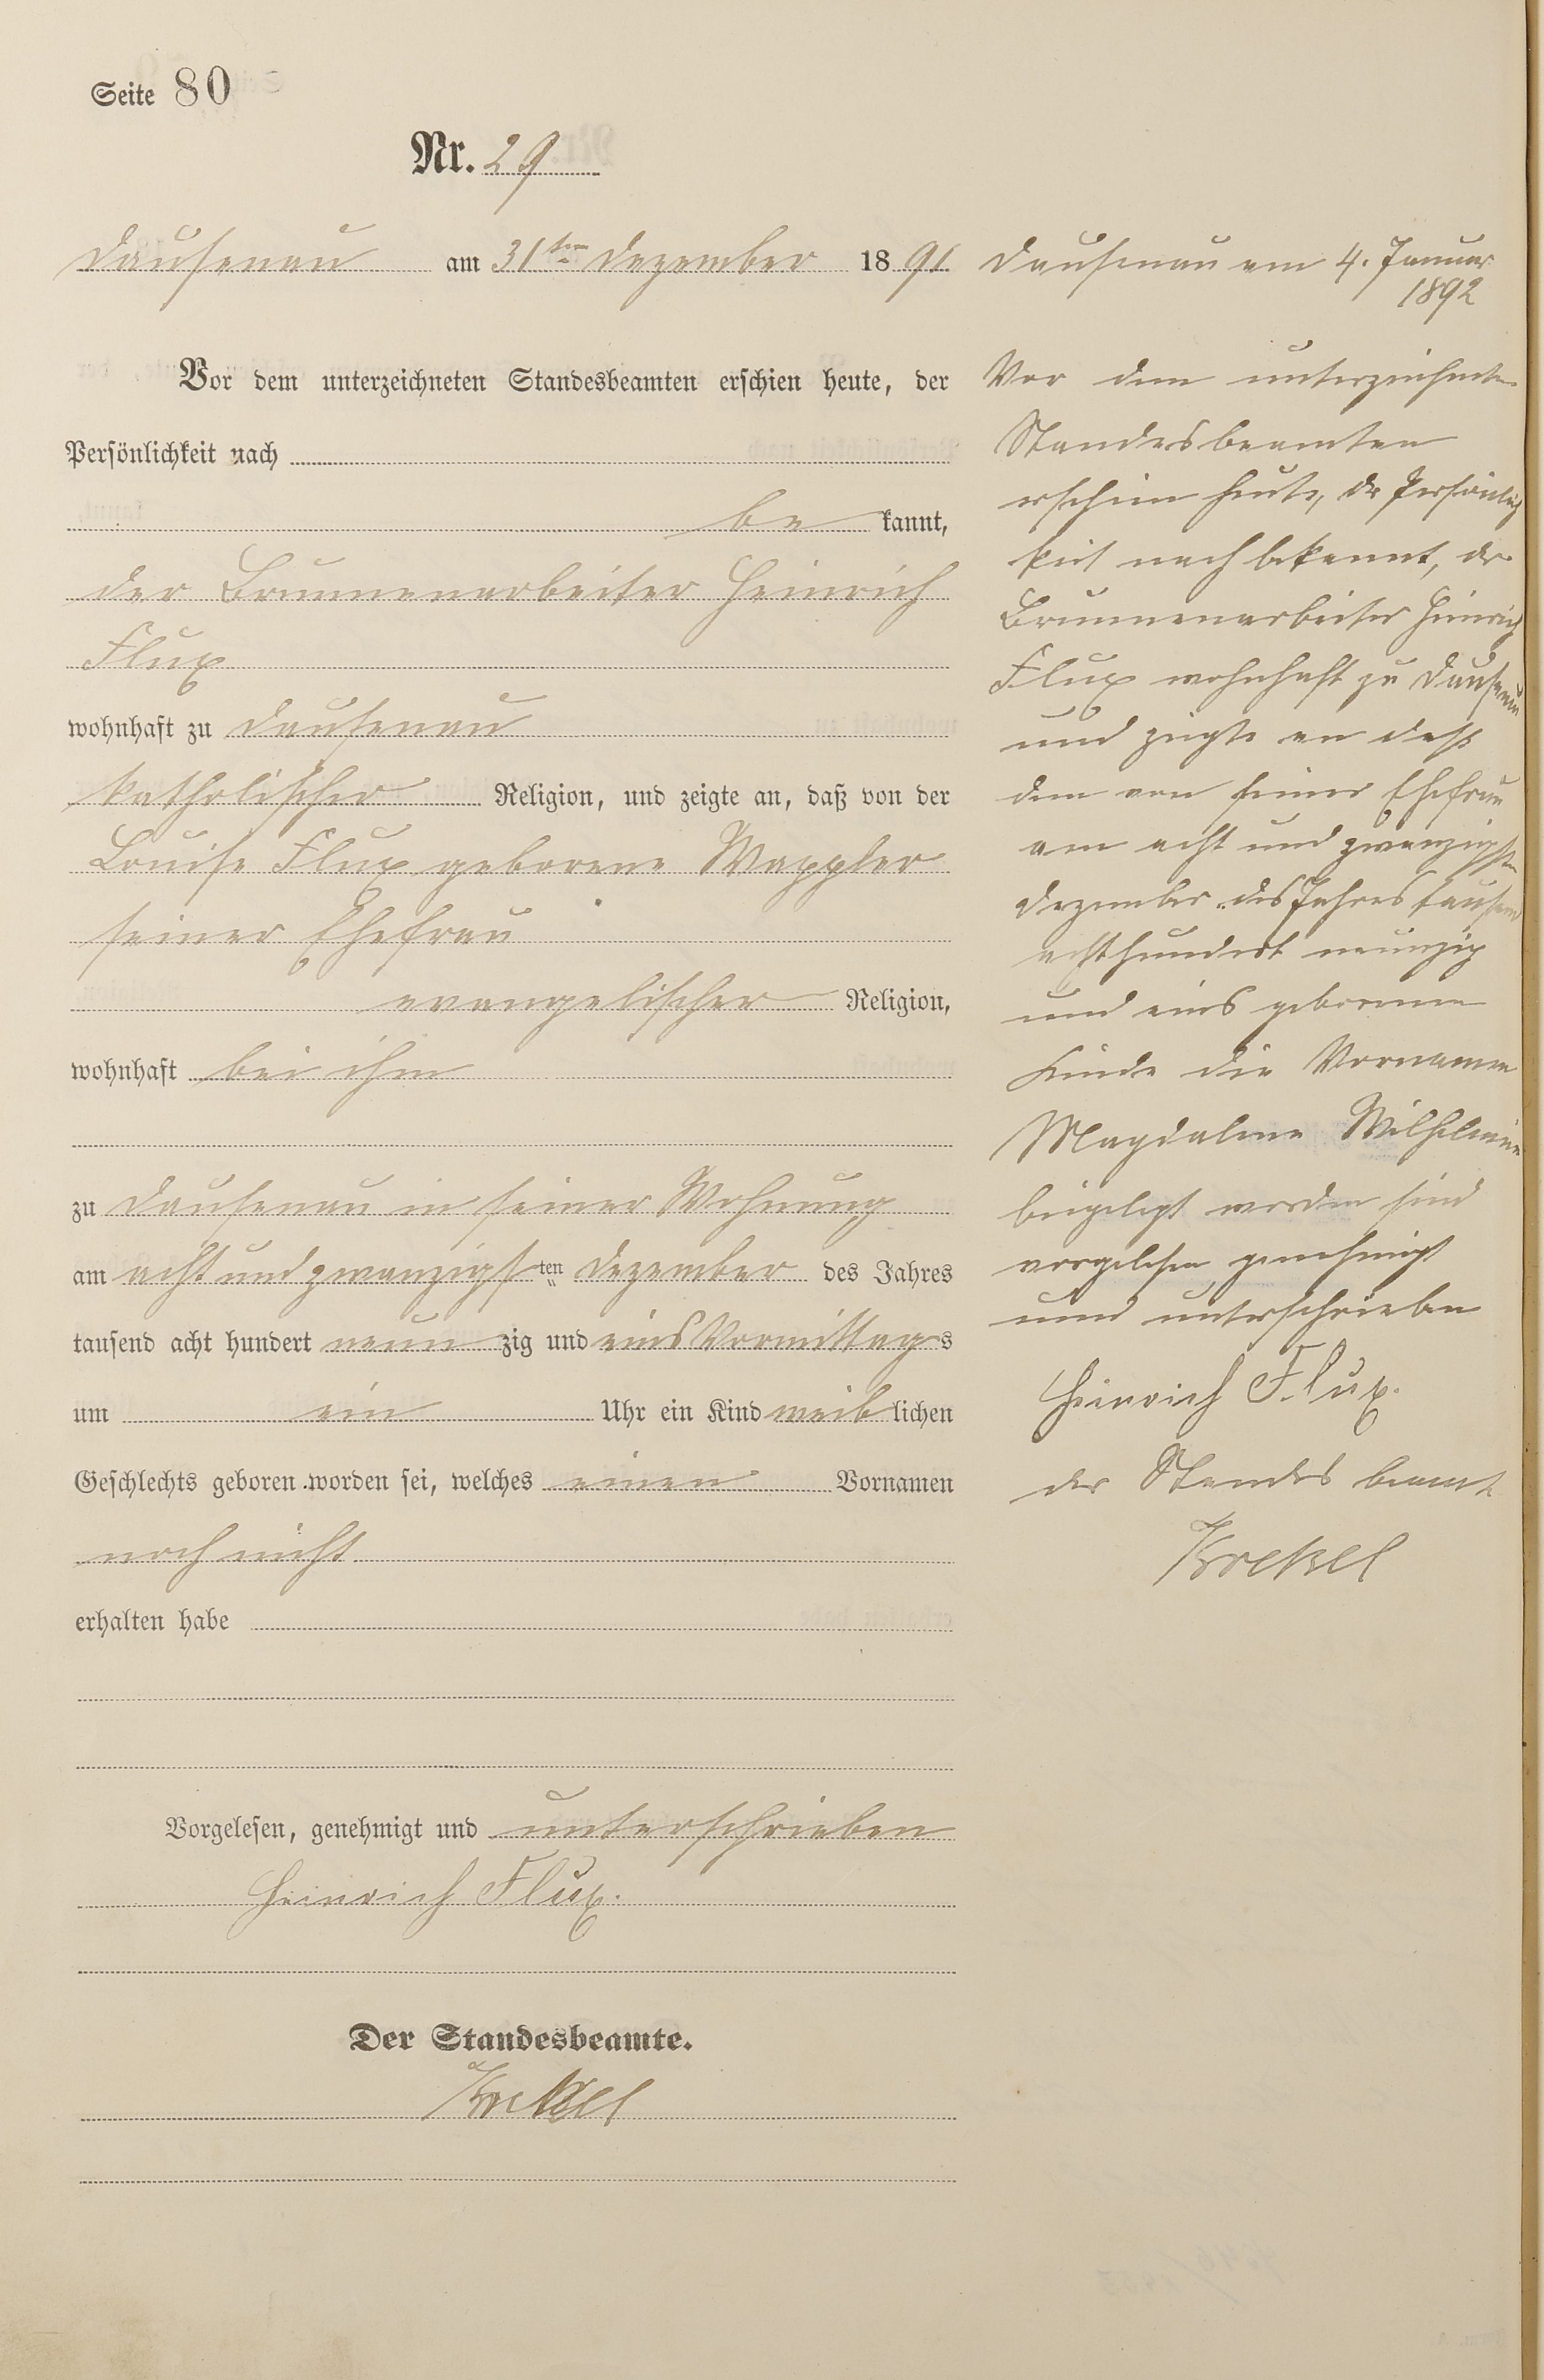 Seite 80
Nr. 29
Dausenau am 31ten Dezember 1891
Vor dem unterzeichneten Standesbeamten erschien heute, der
Persönlichkeit nach
be kannt,
der Brunnenarbeiter Heinrich
Flux
wohnhaft zu Dausenau
katholischer Religion, und zeigte an, daß von der
Louise Flux geborene Wappler
seiner Ehefrau
evangelischer Religion,
wohnhaft bei ihm
zu Dausenau in seiner Wohnung
am acht und zwanzigsten Dezember des Jahres
tausend acht hundert neun zig und eins Vormittags
um ein Uhr ein Kind weiblichen
Geschlechts geboren worden sei, welches einen Vornamen
noch nicht
erhalten habe
Vorgelesen, genehmigt und unterschrieben
Heinrich Flux.
Der Standesbeamte.
Krekel
Dausenau am 4. Januar
1892
Vor dem unterzeichneten
Standesbeamten
erschien heute, der Persönlich
keit nach bekannt, der
Brunnenarbeiter Heinrich
Flux wohnhaft zu Dausenau
und zeigte an daß
dem von seiner Ehefrau
am acht und zwanzigsten
Dezember des Jahres tausend
achthundert neunzig
und eins geborenen
Kinde die Vornamen
Magdalene Wilhelmine
beigelegt worden sind
vorgelesen, genehmigt
und unterschrieben
Heinrich Flux.
der Standes beamt
Krekel